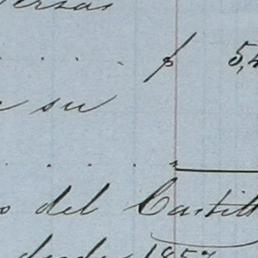 versas
. . . $ 5,4
su
. . . . "
o del Castill
desde 1857